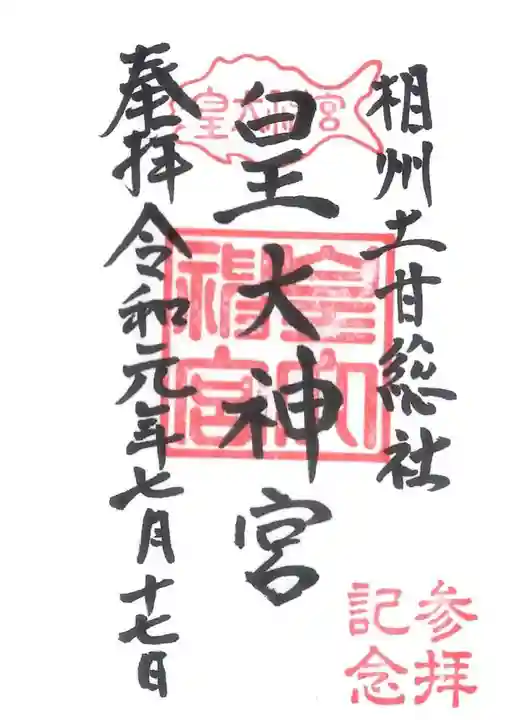 相州土甘総社
皇大神宮
奉拝 令和元年七月十七日
皇大神宮
皇大神宮
参拝
記念